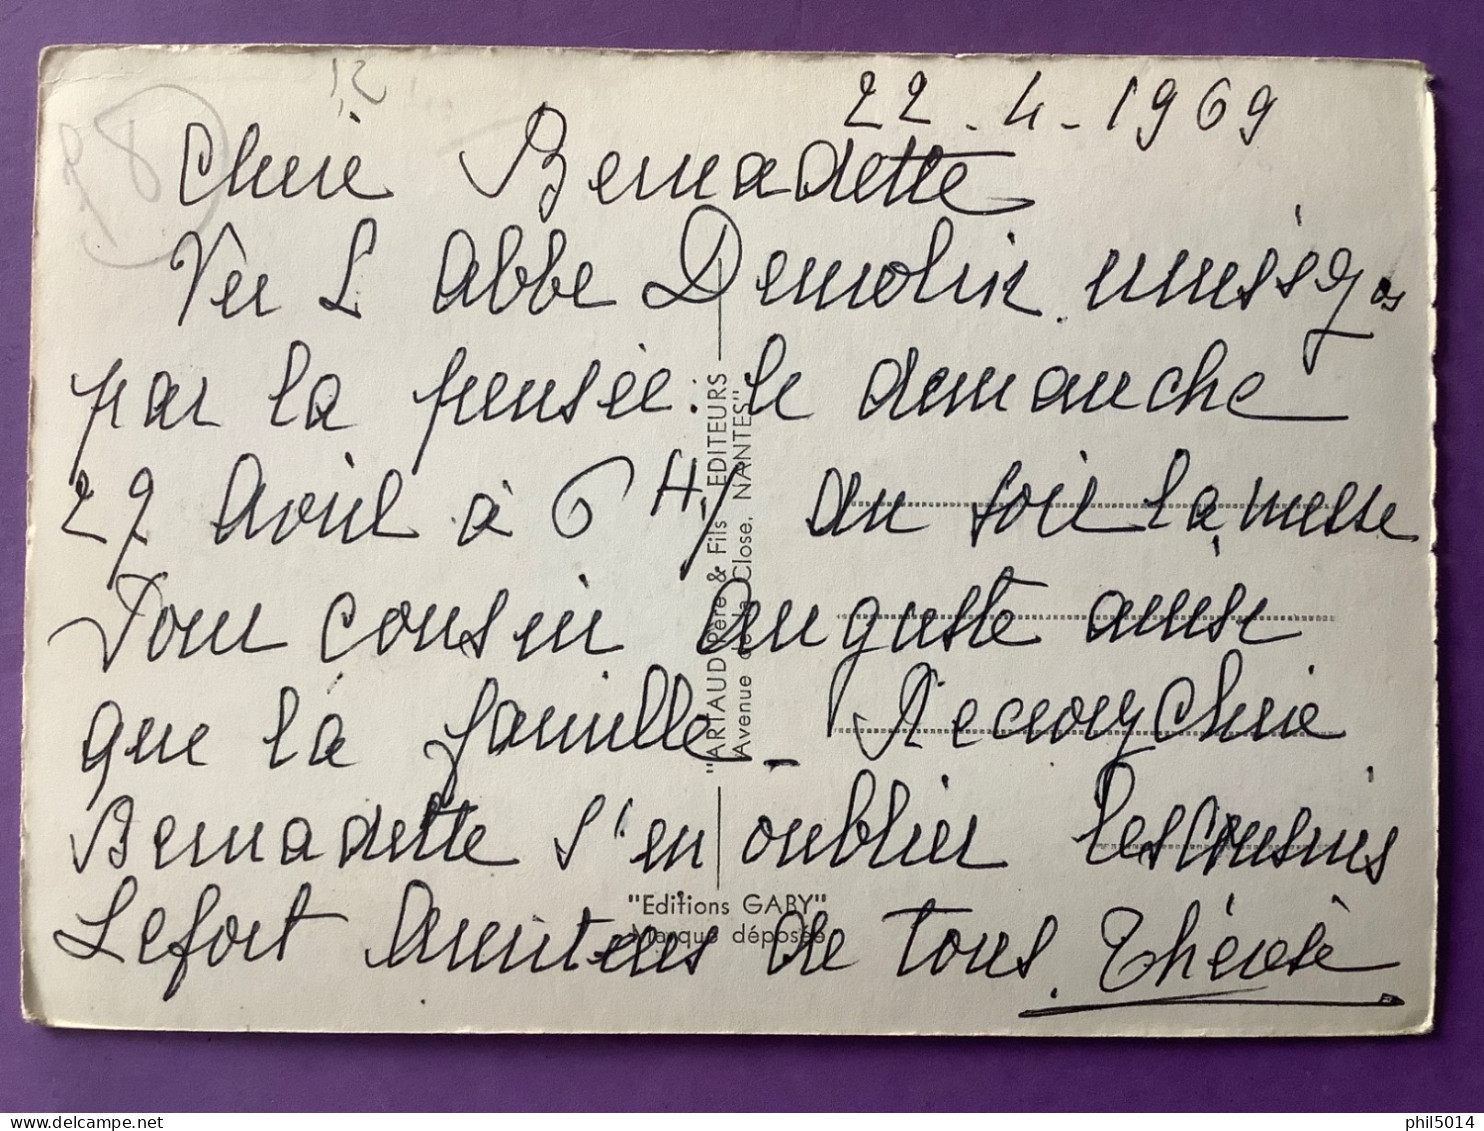 22-4-1969
Chère Bernadette
Vu L'abbé Demolin
par la pensée. le dimanche
27 Avril à 6 H, du soir la messe
Pour cousin Auguste ainsi
que la famille - chère
Bernadette S'en oublier les cousins
Lefort Amitiés de tous. Thérèse
"ARTAUD Père & Fils, EDITEURS
Avenue de la Close, NANTES"
"Editions GABY"
Marque déposée
phil5014